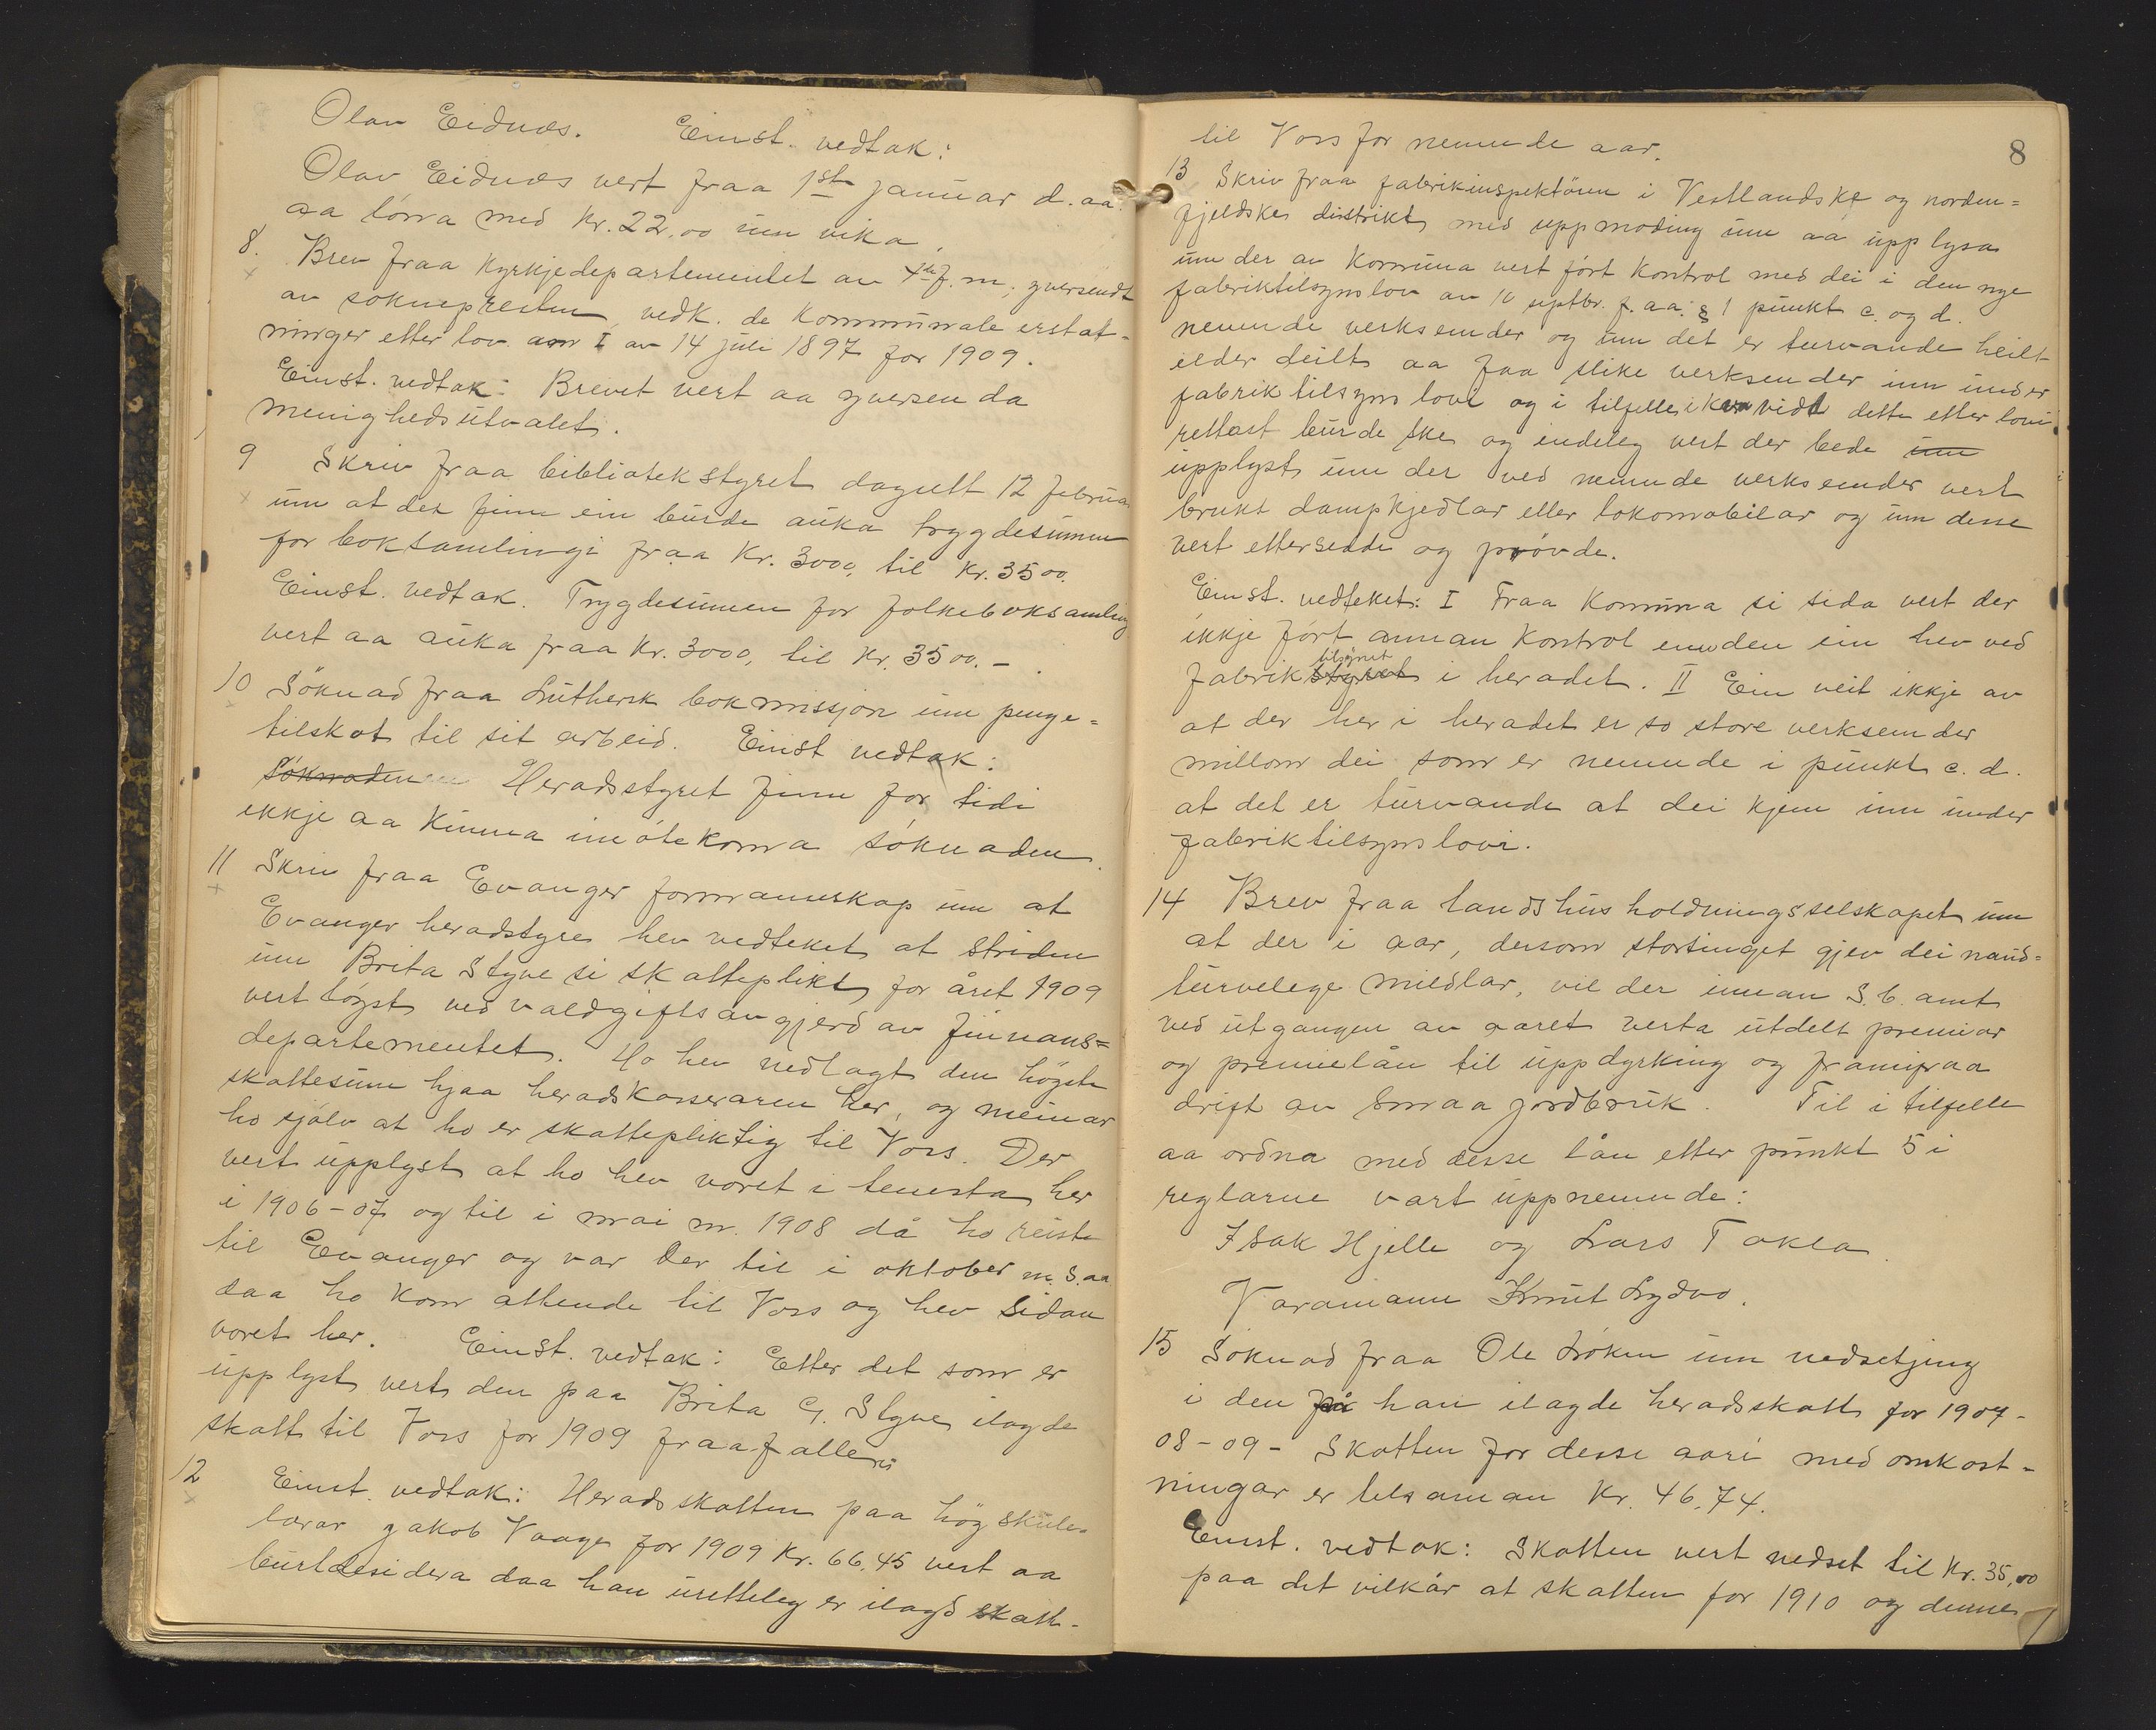 Olav Eidnæs. Einst. vedtak:
Olav Eidnæs vert fraa 1ste januar d. aa.
aa lörra med Kr. 22,00 um vika.
8. Brev fraa Kyrkjedepartementet av 4de f. m., yversendt
av sokneprestem vedk. de Kommunale erstat-
ninger etter lov I av 14 juli 1897 for 1909.
Einst. vedtak: Brevet vert aa yversenda
menighedsutvalet.
9 Skriv fraa bibliotekstyret dagsett 12 februar
um at det finn ein burde auka trygdesummen
for boksamlingi fraa Kr. 3000, til Kr. 3500.
Einst. vedtak. Trygdesummen for folkeboksamling
vert aa auka fraa Kr. 3000, til Kr. 3500.-
10 Söknad fraa Luthersk bokmissjon um penge-
tilskot til sit arbeid. Einst vedtak:
Söknaden Heradsstyret finn for tidi
ikkje aa kunna imötekoma söknaden.
11 Skriv fraa Evanger formannskap um at
Evanger heradstyre hev vedteket at striden
um Brita Styve si skatteplikt for året 1909
vert löyst ved valdgiftsavgjerd av Finnans=
departementet. Ho hev nedlagt den högste
skattesum hjaa heradskasseraren her, og meinar
ho sjölv at ho er skattepliktig til Voss. Der
vert upplyst at ho hev voret i tenesta her
i 1906-07 og til i mai m. 1908 då ho reiste
til Evanger og var der til i oktober m. s. aa
daa ho kom attende til Voss og hev sidan
voret her. Einst. vedtak: Etter det som er
upplyst vert den paa Brita G. Styve ilagde
skatt til Voss for 1909 fraafallen
12 Einst. vedtak: Heradsskatten paa högskule-
lærar Jakob Vaage for 1909 Kr. 66,45 vert aa
burtdesidera daa han uretteleg er ilagd skatt
8
til Voss for nemnde aar.
13 Skriv fraa fabrikinspektören i Vestlandske og norden=
fjeldske distrikt med uppmoding um aa upplysa
um der av Komuna vert fört Kontrol med dei i den nye
fabriktilsynslov av 10 septbr. f. aa. § 1 punkt c. og d.
nemnde verksemder og um det er turvande heilt
elder deilt aa faa slike verksemder inn under
fabriktilsynslovi og i tilfelle i kva vidt dette etter lovi
rettast burde ske og endeleg vert der bede um
upplyst um der ved nemnde verksemder vert
brukt dampkjedlar eller lokomobilar og um desse
vert ettersedde og prövde.
Einst. vedteket: I Fraa Komuna si sida vert der
ikkje fört annan Kontrol enden ein hev ved
tilsynet
fabrikstyret i heradet. II Ein veit ikkje av
at der her i heradet er so store verksemder
millom dei som er nemnde i punkt c. d.
at det er turvande at dei kjem inn under
fabriktilsynslovi.
14 Brev fraa landshusholdningsselskapet um
at der i aar, dersom stortinget gjev dei naud=
turvelege midlar, vil der innan S. B. amt
ved utgangen av aaret verta utdelt premiar
og premielån til uppdyrking og framifraa
drift av Smaa jordbruk. Til i tilfelle
aa ordna med desse lån etter punkt 5 i
reglarne vart uppnemnde:
Isak Hjelle og Lars Takla.
Varamann Knut Lydvo.
15 Söknad fraa Ole Löken um nedsetjing
i den på han ilagde heradsskatt for 1907-
08-09- Skatten for desse aari med omkost-
ningar er tilsaman Kr. 46,74.
Einst. vedtak: Skatten vert nedset til Kr. 35,00
paa det vilkår at skatten for 1910 og denne